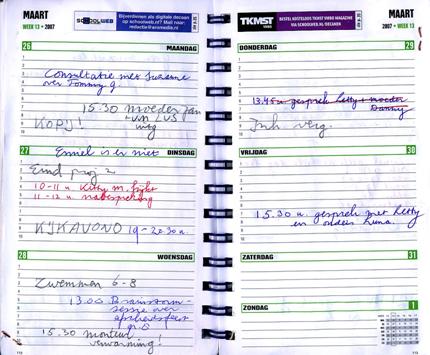 MAART
WEEK 13 • 2007
SCHOOLWEB
Bijverdienen als digitale decaan
op schoolweb.nl? Mail naar:
26
MAANDAG
Consultatie met Suzanne
over Tommy g.
15.30 moeder Jan
LVS
KOPIJ!
27
Emiel is er niet
DINSDAG
Eind proj 2
10-11 u. Kitty m.
11-12 u. nabespreking
KIJKAVOND 19-20.30 u.
28
WOENSDAG
Zwemmen 6-8
13.00 Brainstorm-
sessie over
afscheidsfeest
gr. 8
15.30 monteur
verwarming!
TKMST
BESTEL KOSTELOOS TKMST VMBO MAGAZINE
VIA SCHOOLWEB.NL/DECANEN
MAART
WEEK 13 • 2007
DONDERDAG
29
13.45 u gesprek Letty + moeder
Danny
Inh. verg.
VRIJDAG
30
15.30 u. gesprek met Letty
en ouders Luna.
ZATERDAG
31
ZONDAG
1